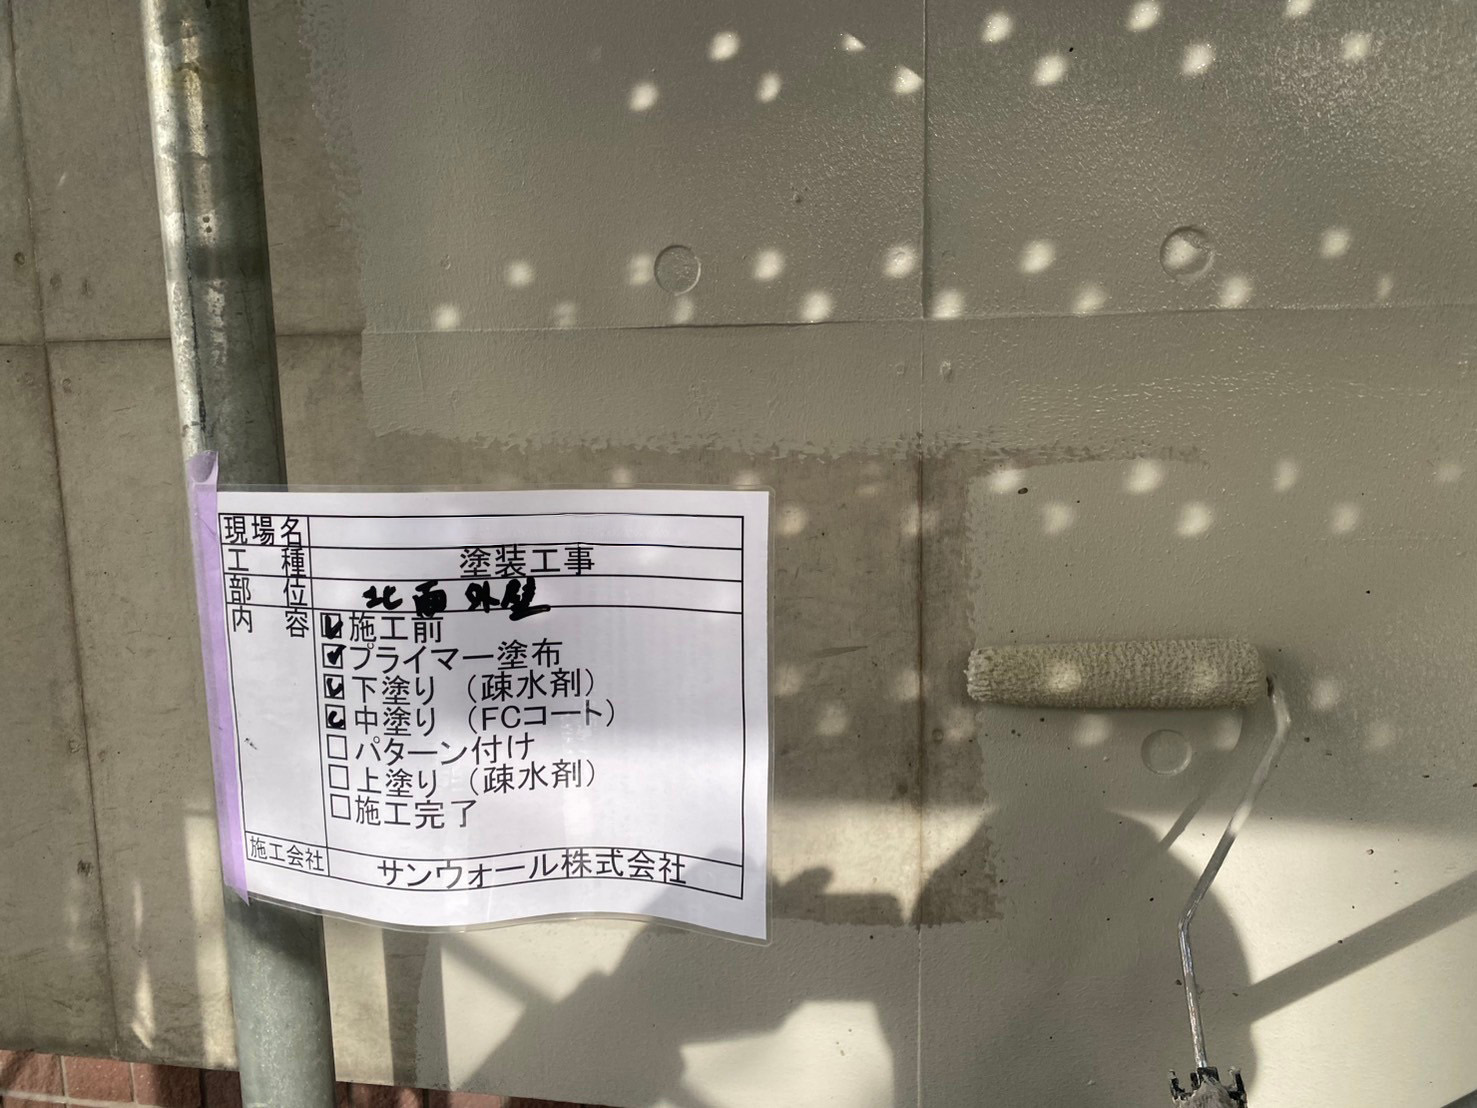 現場名
工種 塗装工事
部位 北面外壁
内容 施工前
プライマー塗布
下塗り（疎水剤）
中塗り（FCコート）
パターン付け
上塗り（疎水剤）
施工完了
施工会社 サンウォール株式会社